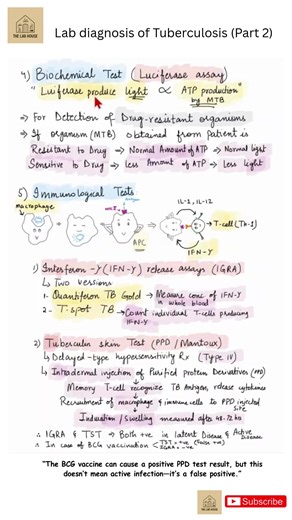 THE LAB HOUSE
Lab diagnosis of Tuberculosis (Part 2)
4) Biochemical Test (Luciferase assay)
"Luciferase produce light ∝ ATP production"
by MTB
⇒ For Detection of Drug-resistant organisms
⇒ If organism (MTB) obtained from patient is
Resistant to Drug → Normal Amount of ATP → Normal light
Sensitive to Drug → Less Amount of ATP → Less light
5) Immunological Tests
macrophage
IL-1, IL-12
T-cell (Th-1)
APC
IFN-γ
1) Interferon-γ (IFN-γ) release assays (IGRA)
↳ Two versions
1- Quantiferon TB Gold → Measure conc of IFN-γ
in whole blood
2- T-spot TB → Count individual T-cells producing
IFN-γ
2) Tuberculin Skin Test (PPD/Mantoux)
↳ Delayed-type hypersensitivity Rx (Type IV)
↳ Intradermal injection of Purified protein Derivatives (PPD)
Memory T-cell recognize TB Antigen, release cytokines
Recruitment of macrophage & immune cells to PPD injected
site
Induration/Swelling measured after 48-72 hrs
∴ IGRA & TST → Both +ve in latent Disease & Active
Disease
∴ In case of BCG vaccination < TST = +ve (False +ve)
IGRA = -ve
"The BCG vaccine can cause a positive PPD test result, but this
doesn't mean active infection—it's a false positive."
THE LAB HOUSE
Subscribe